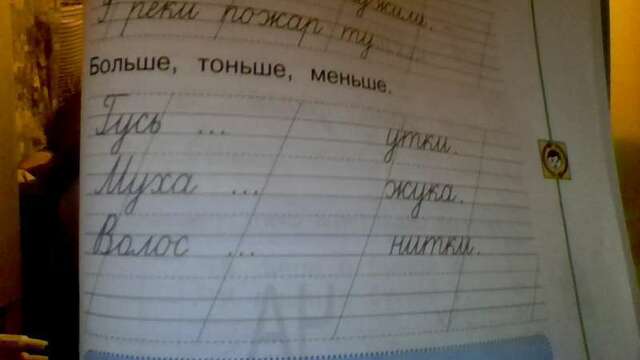 реки рожар ту
Больше, тоньше, меньше.
Гусь ... утки.
Муха ... жука.
Волос ... нитки.